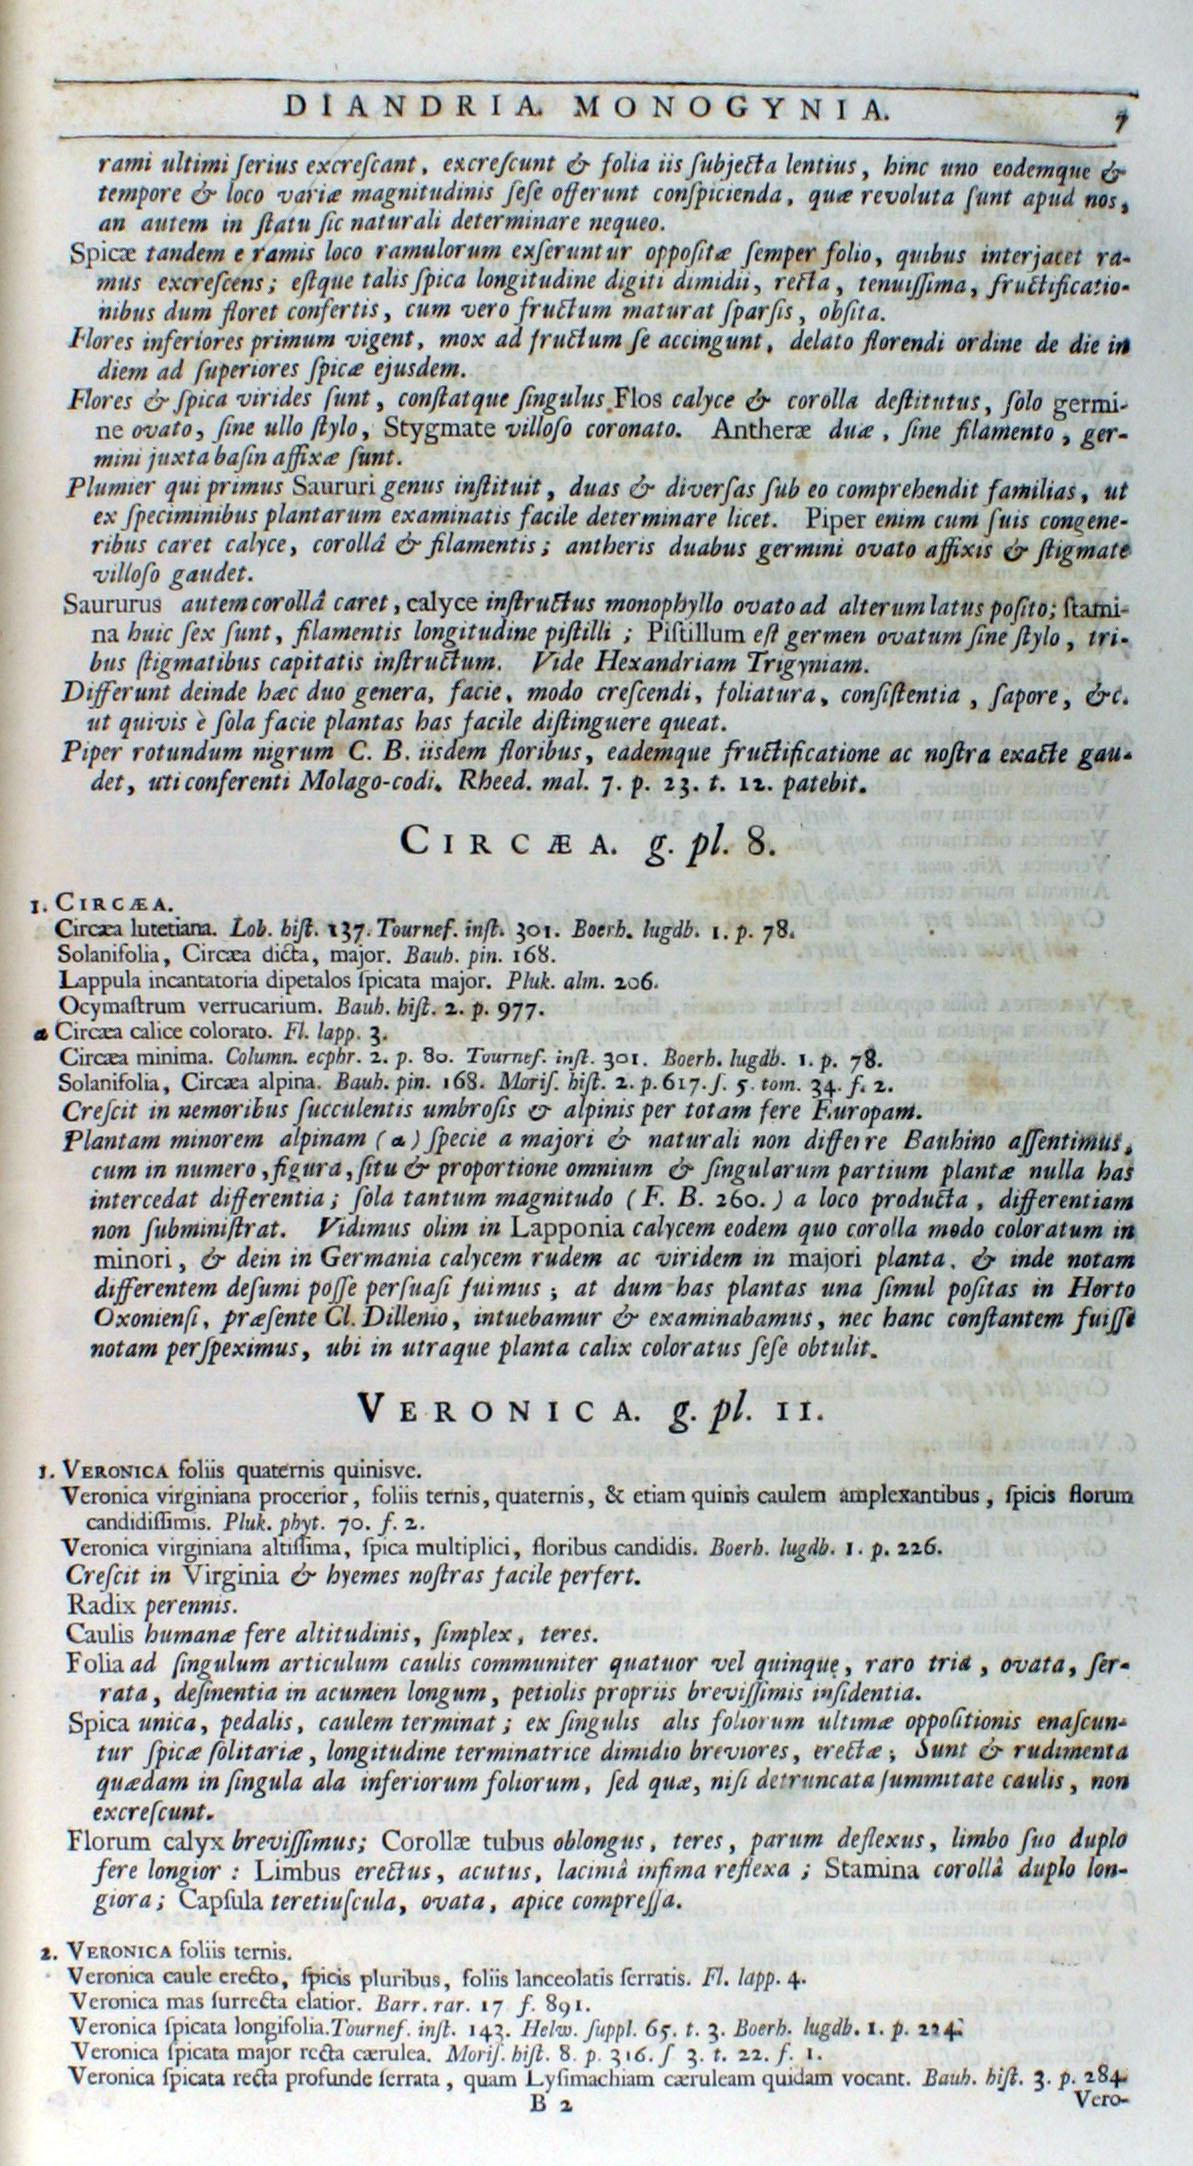 DIANDRIA. MONOGYNIA. 7
rami ultimi ſerius excreſcant, excreſcunt & folia iis ſubjecta lentius, hinc uno eodemque &
tempore & loco variæ magnitudinis ſeſe offerunt conſpicienda, quæ revoluta ſunt apud nos,
an autem in ſtatu ſic naturali determinare nequeo.
Spicæ tandem e ramis loco ramulorum exſeruntur oppoſitæ ſemper folio, quibus interjacet ra-
mus excreſcens; eſtque talis ſpica longitudine digiti dimidii, recta, tenuiſſima, fructificatio-
nibus dum floret confertis, cum vero fructum maturat ſparſis, obſita.
Flores inferiores primum vigent, mox ad fructum ſe accingunt, delato florendi ordine de die in
diem ad ſuperiores ſpicæ ejusdem.
Flores & ſpica virides ſunt, conſtatque ſingulus Flos calyce & corolla deſtitutus, ſolo germi-
ne ovato, ſine ullo ſtylo, Stygmate villoſo coronato. Antheræ duæ, ſine filamento, ger-
mini juxta baſin affixæ ſunt.
Plumier qui primus Saururi genus inſtituit, duas & diverſas ſub eo comprehendit familias, ut
ex ſpeciminibus plantarum examinatis facile determinare licet. Piper enim cum ſuis congene-
ribus caret calyce, corollâ & filamentis; antheris duabus germini ovato affixis & ſtigmate
villoſo gaudet.
Saururus autem corollâ caret, calyce inſtructus monophyllo ovato ad alterum latus poſito; ſtami-
na huic ſex ſunt, filamentis longitudine piſtilli; Piſtillum eſt germen ovatum ſine ſtylo, tri-
bus ſtigmatibus capitatis inſtructum. Vide Hexandriam Trigyniam.
Differunt deinde hæc duo genera, facie, modo creſcendi, foliatura, conſiſtentia, ſapore, &c.
ut quivis è ſola facie plantas has facile diſtinguere queat.
Piper rotundum nigrum C. B. iisdem floribus, eademque fructificatione ac noſtra exacte gau-
det, uti conferenti Molago-codi. Rheed. mal. 7. p. 23. t. 12. patebit.
CIRCÆA. g. pl. 8.
1. CIRCÆA.
Circæa lutetiana. Lob. hiſt. 137. Tournef. inſt. 301. Boerh. lugdb. 1. p. 78.
Solanifolia, Circæa dicta, major. Bauh. pin. 168.
Lappula incantatoria dipetalos ſpicata major. Pluk. alm. 206.
Ocymaſtrum verrucarium. Bauh. hiſt. 2. p. 977.
α Circæa calice colorato. Fl. lapp. 3.
Circæa minima. Column. ecphr. 2. p. 80. Tournef. inſt. 301. Boerh. lugdb. 1. p. 78.
Solanifolia, Circæa alpina. Bauh. pin. 168. Moriſ. hiſt. 2. p. 617. ſ. 5. tom. 34. f. 2.
Creſcit in nemoribus ſucculentis umbroſis & alpinis per totam fere Europam.
Plantam minorem alpinam (α) ſpecie a majori & naturali non differre Bauhino aſſentimus,
cum in numero, figura, ſitu & proportione omnium & ſingularum partium plantæ nulla has
intercedat differentia; ſola tantum magnitudo (F. B. 260.) a loco producta, differentiam
non ſubminiſtrat. Vidimus olim in Lapponia calycem eodem quo corolla modo coloratum in
minori, & dein in Germania calycem rudem ac viridem in majori planta, & inde notam
differentem deſumi poſſe perſuaſi fuimus; at dum has plantas una ſimul poſitas in Horto
Oxonienſi, præſente Cl. Dillenio, intuebamur & examinabamus, nec hanc conſtantem fuiſſe
notam perſpeximus, ubi in utraque planta calix coloratus ſeſe obtulit.
VERONICA. g. pl. 11.
1. VERONICA foliis quaternis quinisve.
Veronica virginiana procerior, foliis ternis, quaternis, & etiam quinis caulem amplexantibus, ſpicis florum
candidiſſimis. Pluk. phyt. 70. f. 2.
Veronica virginiana altiſſima, ſpica multiplici, floribus candidis. Boerh. lugdb. 1. p. 226.
Creſcit in Virginia & hyemes noſtras facile perfert.
Radix perennis.
Caulis humanæ fere altitudinis, ſimplex, teres.
Folia ad ſingulum articulum caulis communiter quatuor vel quinque, raro tria, ovata, ſer-
rata, deſinentia in acumen longum, petiolis propriis breviſſimis inſidentia.
Spica unica, pedalis, caulem terminat; ex ſingulis alis foliorum ultimæ oppoſitionis enaſcun-
tur ſpicæ ſolitariæ, longitudine terminatrice dimidio breviores, erectæ; Sunt & rudimenta
quædam in ſingula ala inferiorum foliorum, ſed quæ, niſi detruncata ſummitate caulis, non
excreſcunt.
Florum calyx breviſſimus; Corollæ tubus oblongus, teres, parum deflexus, limbo ſuo duplo
fere longior: Limbus erectus, acutus, laciniâ infima reflexa; Stamina corollâ duplo lon-
giora; Capſula teretiuſcula, ovata, apice compreſſa.
2. VERONICA foliis ternis.
Veronica caule erecto, ſpicis pluribus, foliis lanceolatis ſerratis. Fl. lapp. 4.
Veronica mas ſurrecta elatior. Barr. rar. 17 f. 891.
Veronica ſpicata longifolia. Tournef. inſt. 143. Helw. ſuppl. 65. t. 3. Boerh. lugdb. 1. p. 224.
Veronica ſpicata major recta cærulea. Moriſ. hiſt. 8. p. 316. ſ 3. t. 22. f. 1.
Veronica ſpicata recta profunde ſerrata, quam Lyſimachiam cæruleam quidam vocant. Bauh. hiſt. 3. p. 284.
B 2 Vero-